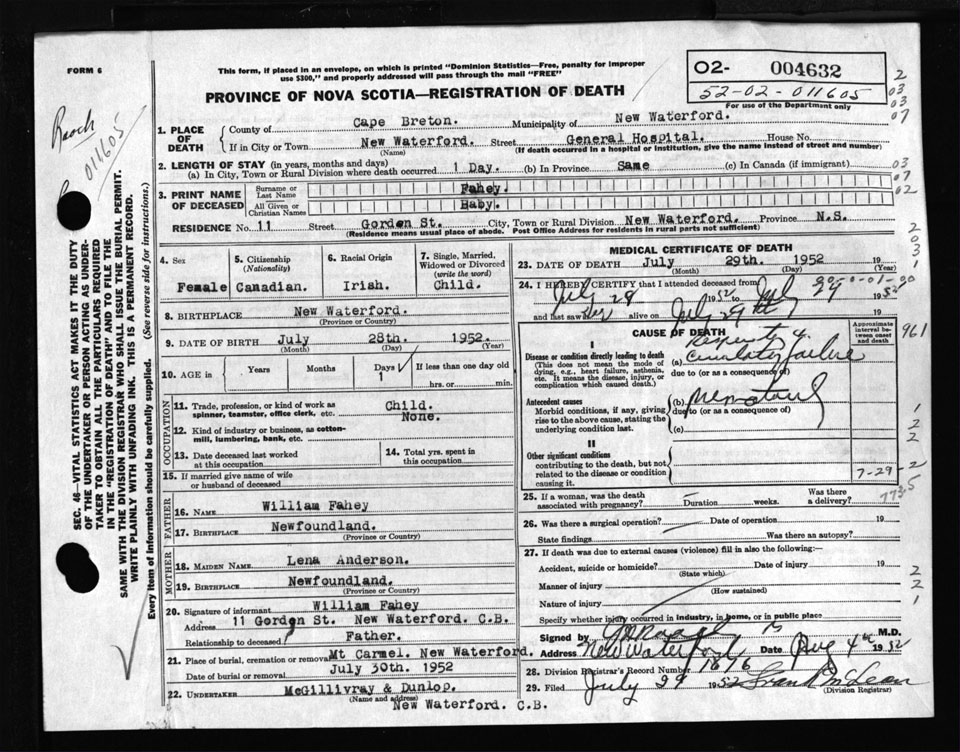 FORM 6
This form, if placed in an envelope, on which is printed "Dominion Statistics—Free, penalty for improper
use $300," and properly addressed will pass through the mail "FREE"
PROVINCE OF NOVA SCOTIA—REGISTRATION OF DEATH
02- 004632
52-02-011605
For use of the Department only
2
03
03
07
Roach
011605
1. PLACE OF DEATH
County of Cape Breton. Municipality of New Waterford.
If in City or Town New Waterford. Street General Hospital. House No.
(Name) (If death occurred in a hospital or institution, give the name instead of street and number)
2. LENGTH OF STAY (in years, months and days)
(a) In City, Town or Rural Division where death occurred 1 Day. (b) In Province Same (c) In Canada (if immigrant)
03
07
02
3. PRINT NAME OF DECEASED
Surname or Last Name Fahey.
All Given or Christian Names Baby.
RESIDENCE No. 11 Street Gordon St. City, Town or Rural Division New Waterford. Province N.S.
(Residence means usual place of abode. Post Office Address for residents in rural parts not sufficient)
2
0
3
1
SEC. 46—VITAL STATISTICS ACT MAKES IT THE DUTY
OF THE UNDERTAKER OR PERSON ACTING AS UNDER-
TAKER TO OBTAIN ALL THE PARTICULARS REQUIRED
IN THE "REGISTRATION OF DEATH" AND TO FILE THE
SAME WITH THE DIVISION REGISTRAR WHO SHALL ISSUE THE BURIAL PERMIT.
WRITE PLAINLY WITH UNFADING INK. THIS IS A PERMANENT RECORD.
Every item of information should be carefully supplied. (See reverse side for instructions.)
4. Sex
Female
5. Citizenship
(Nationality)
Canadian.
6. Racial Origin
Irish.
7. Single, Married,
Widowed or Divorced
(write the word)
Child.
8. BIRTHPLACE New Waterford.
(Province or Country)
9. DATE OF BIRTH July 28th. 1952.
(Month) (Day) (Year)
10. AGE in Years Months Days If less than one day old
1 hrs. or min.
OCCUPATION
11. Trade, profession, or kind of work as Child.
spinner, teamster, office clerk, etc. None.
12. Kind of industry or business, as cotton-
mill, lumbering, bank, etc.
13. Date deceased last worked
at this occupation
14. Total yrs. spent in
this occupation
15. If married give name of wife
or husband of deceased
FATHER
16. NAME William Fahey
17. BIRTHPLACE Newfoundland.
(Province or Country)
MOTHER
18. MAIDEN NAME Lena Anderson.
19. BIRTHPLACE Newfoundland.
(Province or Country)
20. Signature of informant William Fahey
Address 11 Gordon St. New Waterford. C.B.
Relationship to deceased Father.
21. Place of burial, cremation or removal Mt Carmel. New Waterford.
Date of burial or removal July 30th. 1952
22. UNDERTAKER McGillivray & Dunlop.
(Name and address)
New Waterford. C.B.
MEDICAL CERTIFICATE OF DEATH
23. DATE OF DEATH July 29th. 1952 19
(Month) (Day) (Year)
24. I HEREBY CERTIFY that I attended deceased from
July 28 1952 to July 29 1952
and last saw her alive on July 29th
CAUSE OF DEATH
Approximate
interval be-
tween onset
and death
961
I
Disease or condition directly leading to death
(This does not mean the mode of
dying, e.g., heart failure, asthenia,
etc. It means the disease, injury, or
complication which caused death.)
(a) Circulatory failure
due to (or as a consequence of)
Antecedent causes
Morbid conditions, if any, giving
rise to the above cause, stating the
underlying condition last.
(b)
due to (or as a consequence of)
(c)
1
2
2
II
Other significant conditions
contributing to the death, but not
related to the disease or condition
causing it.
7-29-2
7735
25. If a woman, was the death
associated with pregnancy? Duration weeks. Was there
a delivery?
26. Was there a surgical operation? Date of operation 19
State findings Was there an autopsy?
27. If death was due to external causes (violence) fill in also the following:—
Accident, suicide or homicide? Date of injury 19
(State which)
Manner of injury
(How sustained)
Nature of injury
Specify whether injury occurred in industry, in home, or in public place
2
2
1
Signed by M.D.
Address New Waterford Date Aug 4th 1952
28. Division Registrar's Record Number 1676
29. Filed July 29 1952 Frank McLean
(Division Registrar)